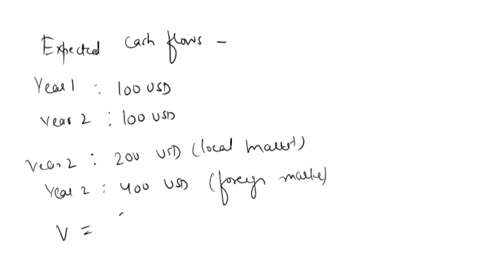 Expected cash flows -
Year 1 : 100 USD
Year 2 : 100 USD
Year 2 : 200 USD (local market)
Year 2 : 400 USD (foreign market)
V =